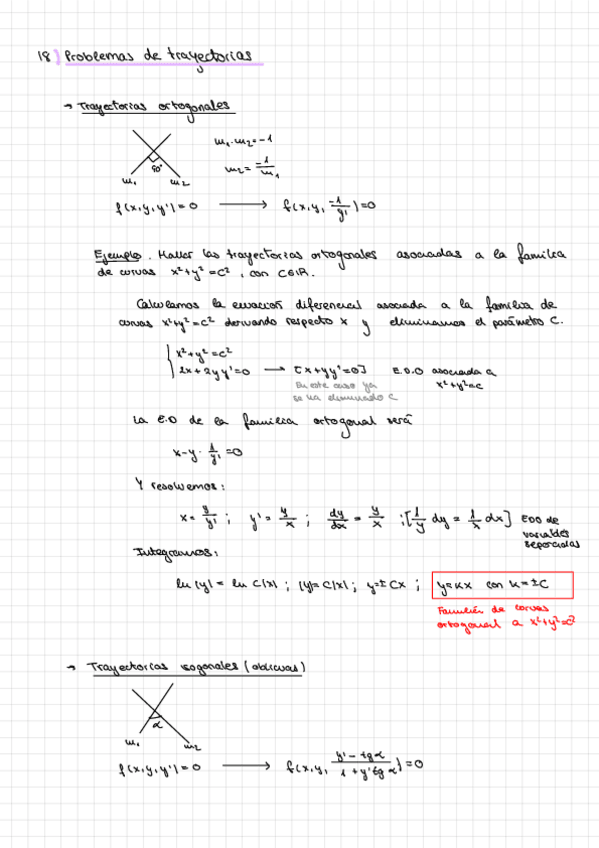 18) Problemas de trayectorias
→ Trayectorias ortogonales
m₁·m₂=-1
90°
m₂ = -1/m₁
m₁ m₂
f(x,y,y')=0 → f(x,y, -1/y')=0
Ejemplo. Hallar las trayectorias ortogonales asociadas a la familia
de curvas x²+y²=C², con C∈ℝ.
Calculamos la ecuación diferencial asociada a la familia de
curvas x²+y²=C² derivando respecto x y eliminamos el parámetro C.
x²+y²=C²
2x+2yy'=0 → [x+yy'=0] E.D.O asociada a
x²+y²=C
En este caso ya
se ha eliminado C
La E.D de la familia ortogonal será
x-y· 1/y' =0
Y resolvemos:
x= y/y' ; y'= y/x ; dy/dx = y/x ; [1/y dy = 1/x dx] EDO de
variables
separadas
Integramos:
ln|y| = ln C|x| ; |y|= C|x| ; y=± Cx ; y=kx con k=±C
Familia de curvas
ortogonal a x²+y²=C²
→ Trayectorias isogonales (oblicuas)
α
m₁ m₂
f(x,y,y')=0 → f(x,y, (y'-tgα)/(1+y'tgα))=0